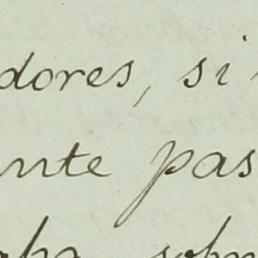 dores, si
nte pas